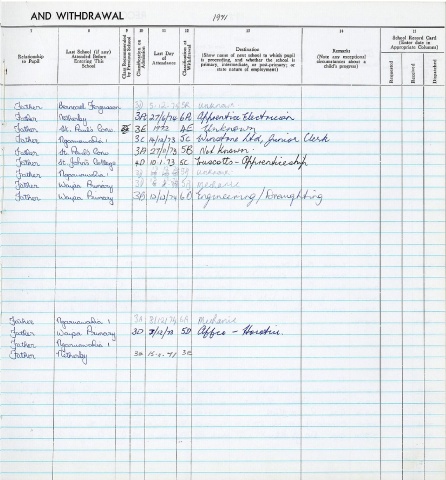 AND WITHDRAWAL 1971
7 8 9 10 11 12 13 14 15
Relationship to Pupil
Last School (if any) Attended Before Entering This School
Class Recommended by Previous School
Classification on Admission
Last Day of Attendance
Classification at Withdrawal
Destination
(Show name of next school to which pupil is proceeding, and whether the school is primary, intermediate, or post-primary; or state nature of employment)
Remarks
(Note any exceptional circumstances about a child's progress)
School Record Card
(Enter date in Appropriate Column)
Requested
Received
Forwarded
Father Bernard Fergusson unknown
Father Netherby 3A 27/8/74 6A Apprentice Electrician
Father St. Paul's Conv 3E 1972 4E Unknown
Father Ngaruawahia 1 3C 14/12/73 5C Winstone Ltd, Junior Clerk
Father St Paul's Conv 3A 27/11/73 5B Not Known.
Father St. John's College 4D 10.1.73 5C Apprenticeship
Father Ngaruawahia 1 unknown
Father Waipa Primary mechanic
Father Waipa Primary 3B 10/12/74 6D Engineering/Draughting
Father Ngaruawahia 1 3A 6A Mechanic
Father Waipa Primary 3D /12/73 5D
Father Ngaruawahia 1
Father Netherby 3E